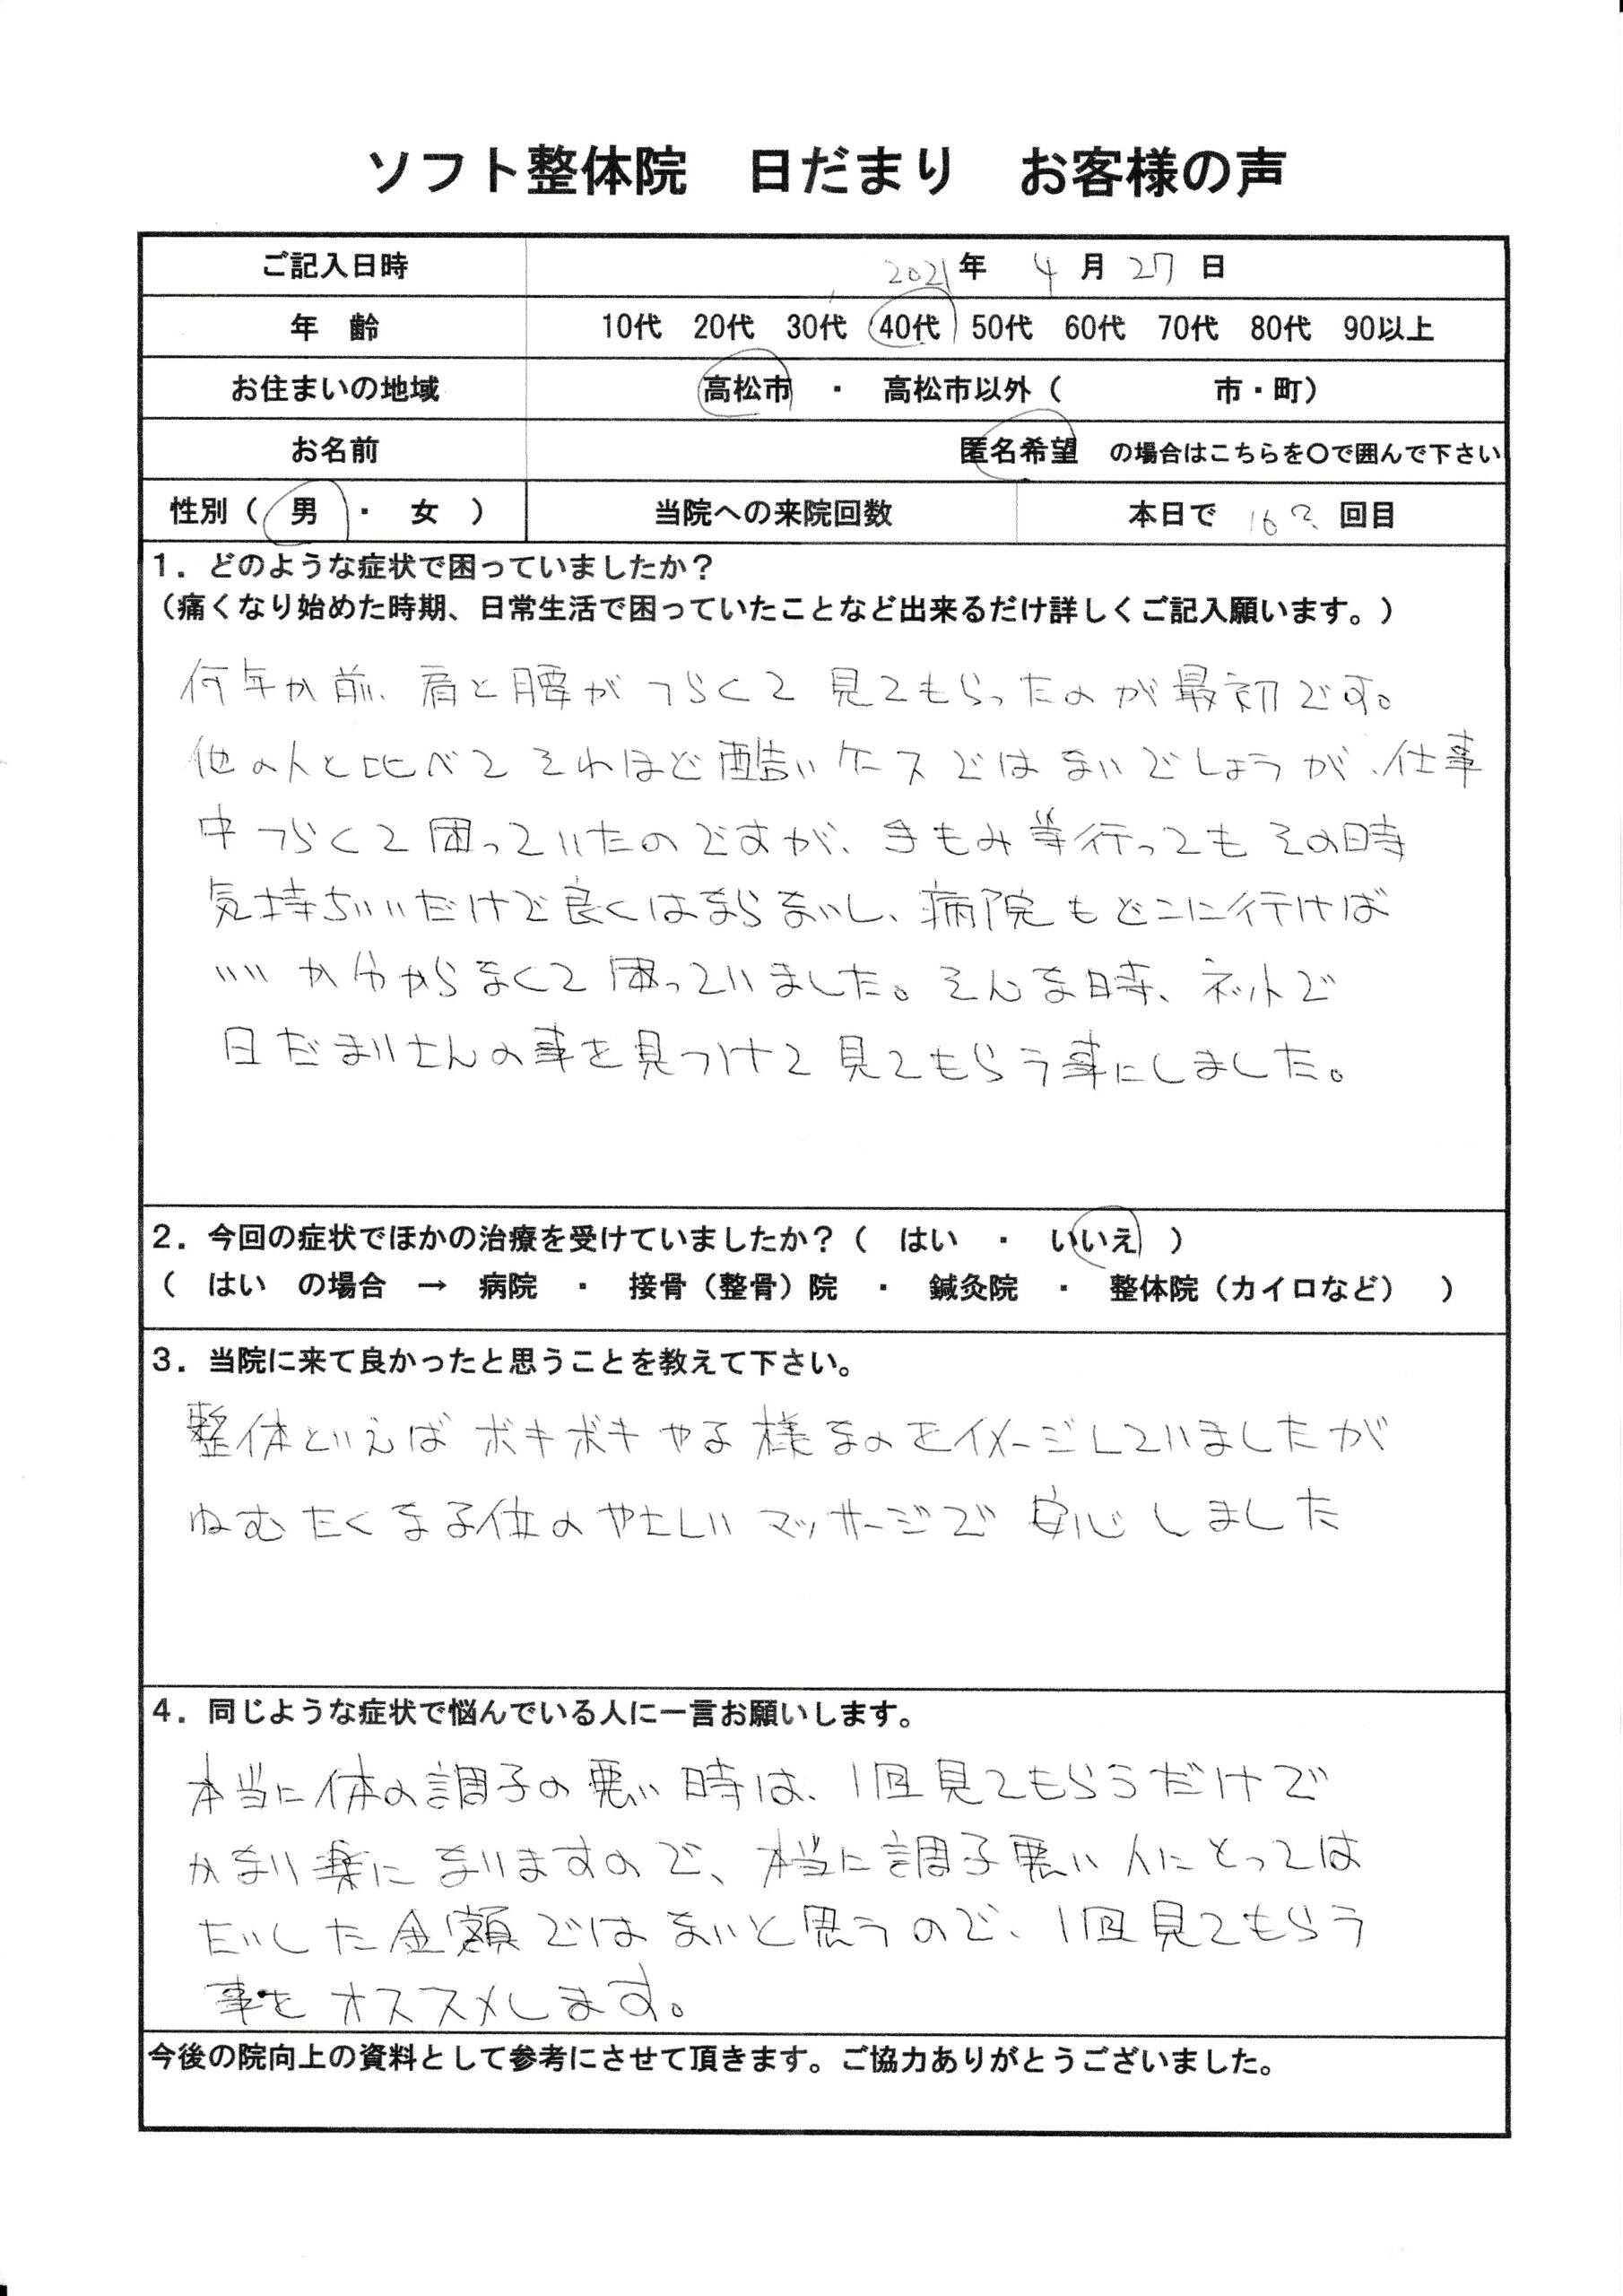 ソフト整体院　日だまり　お客様の声
ご記入日時　2021年　4月27日
年　齢　10代　20代　30代　40代　50代　60代　70代　80代　90以上
お住まいの地域　高松市　・　高松市以外（　　　　　市・町）
お名前　匿名希望　の場合はこちらを〇で囲んで下さい
性別（　男　・　女　）　当院への来院回数　本日で　16？回目
1．どのような症状で困っていましたか？
（痛くなり始めた時期、日常生活で困っていたことなど出来るだけ詳しくご記入願います。）
何年か前、肩と腰がつらくて見てもらったのが最初です。
他の人と比べてそれほど酷いケースではないでしょうが、仕事
中つらくて困っていたのですが、きもみ等行ってもその時
気持ちいいだけで良くはならないし、病院もどこに行けば
いいか分からなくて困っていました。そんな時、ネットで
日だまりさんの事を見つけて見てもらう事にしました。
2．今回の症状でほかの治療を受けていましたか？（　はい　・　いいえ　）
（　はい　の場合　→　病院　・　接骨（整骨）院　・　鍼灸院　・　整体院（カイロなど）　）
3．当院に来て良かったと思うことを教えて下さい。
整体といえばボキボキやる様なのをイメージしていましたが
ねむたくなる位のやさしいマッサージで安心しました
4．同じような症状で悩んでいる人に一言お願いします。
本当に体の調子の悪い時は、1回見てもらうだけで
かなり楽になりますので、本当に調子悪い人にとっては
たいした金額ではないと思うので、1回見てもらう
事をオススメします。
今後の院向上の資料として参考にさせて頂きます。ご協力ありがとうございました。